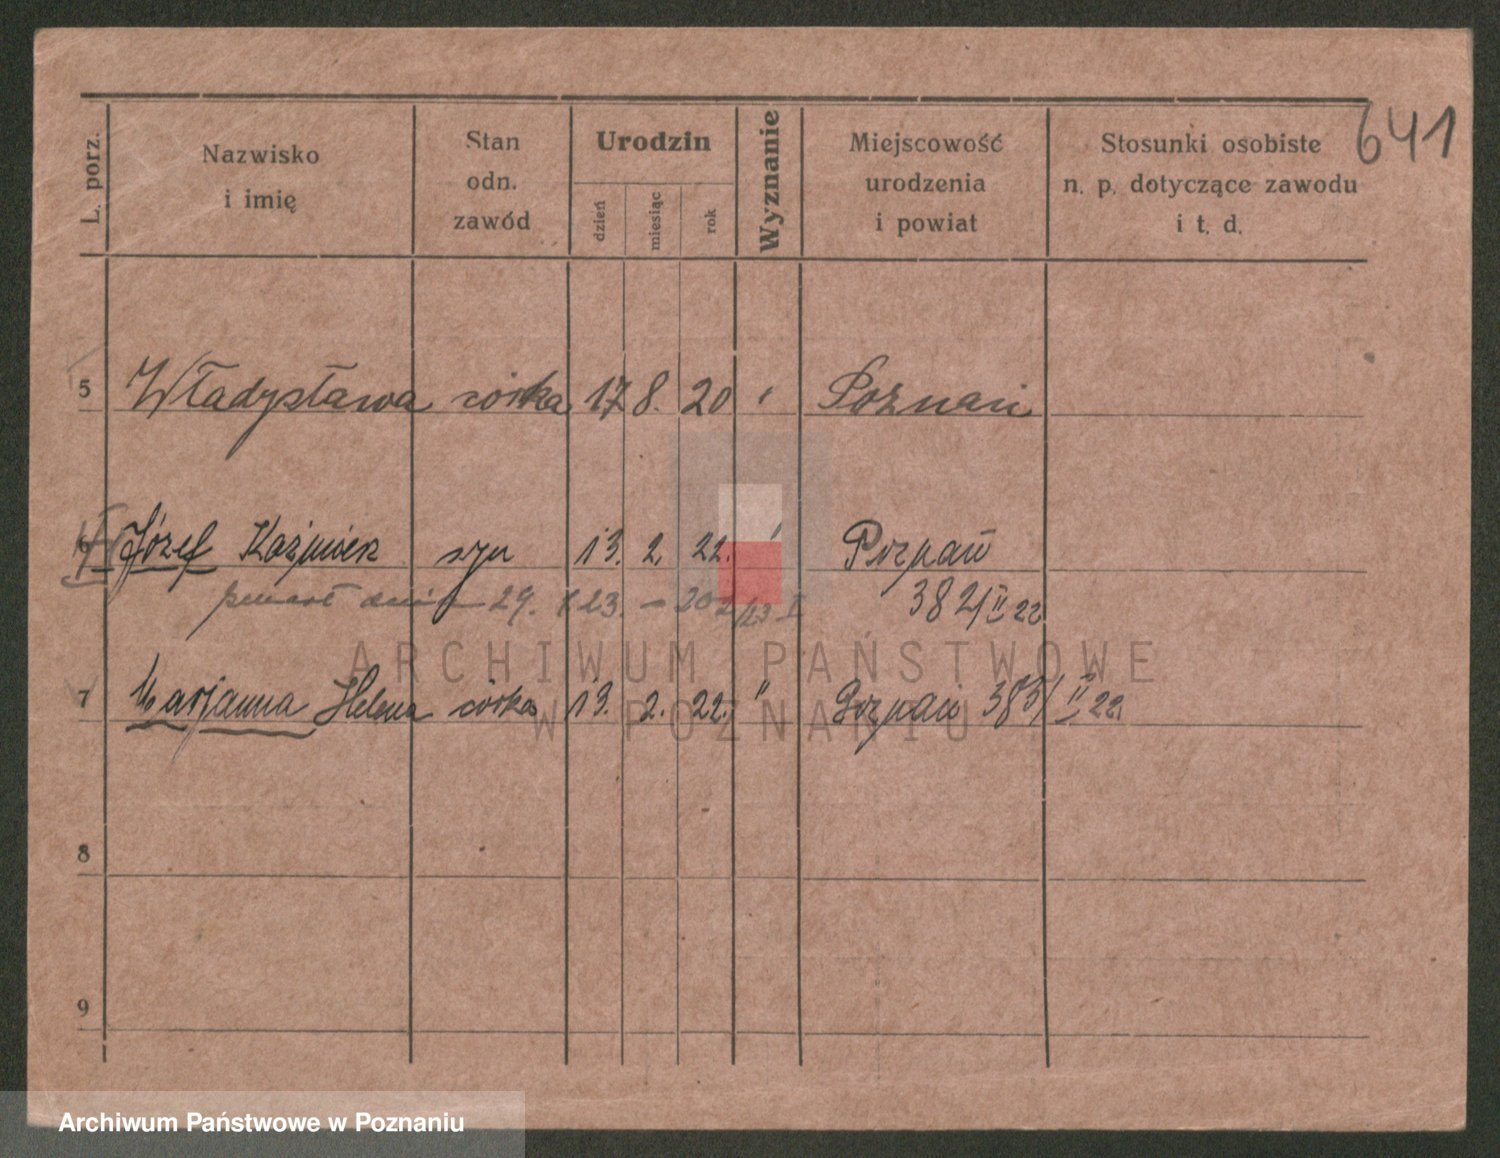 641
L. porz. Nazwisko i imię Stan odn. zawód Urodzin dzień miesiąc rok Wyznanie Miejscowość urodzenia i powiat Stosunki osobiste n. p. dotyczące zawodu i t. d.
5 Władysława córka 17 8. 20 " Poznań
Józef Kaźmierz syn 13. 2. 22. " Poznań
zmarł dnia 29. 23. 382/II 22
ARCHIWUM PAŃSTWOWE
7 Marjanna Helena córka 13. 2. 22. " Poznań 383/II 22.
W POZNANIU
8
9
Archiwum Państwowe w Poznaniu